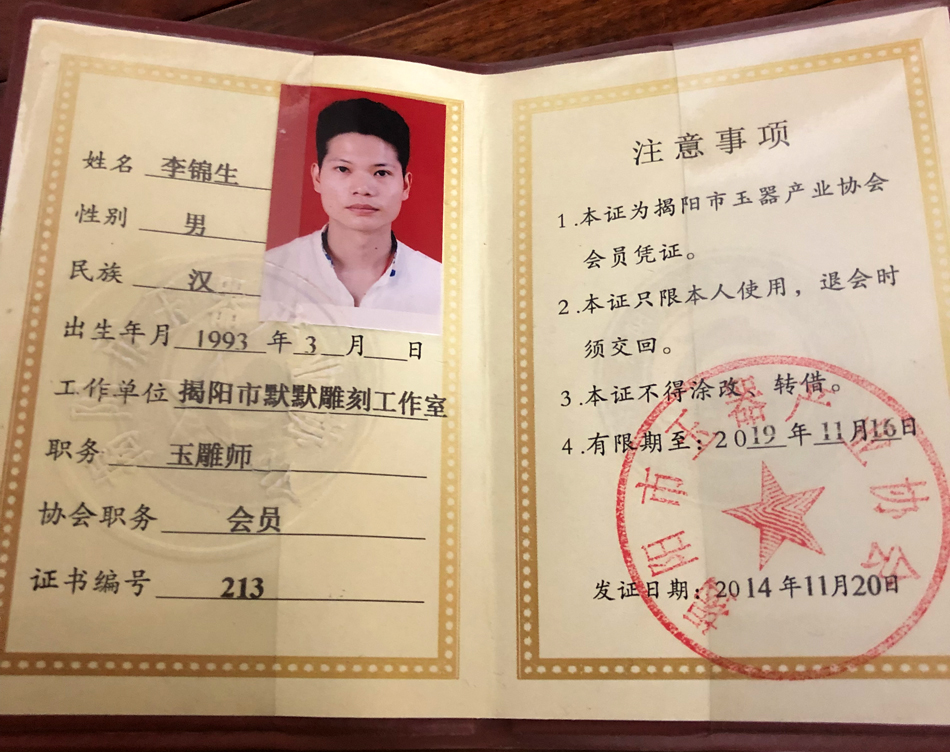 姓名 李锦生
性别 男
民族 汉
出生年月 1993 年 3 月 日
工作单位 揭阳市默默雕刻工作室
职务 玉雕师
协会职务 会员
证书编号 213
注意事项
1.本证为揭阳市玉器产业协会
会员凭证。
2.本证只限本人使用，退会时
须交回。
3.本证不得涂改、转借。
4.有限期至：2019 年 11 月 16 日
发证日期：2014 年 11 月 20 日
揭阳市玉器产业协会